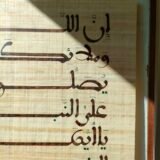 إن الله
وملائك
يصلو
على النب
يا أيها